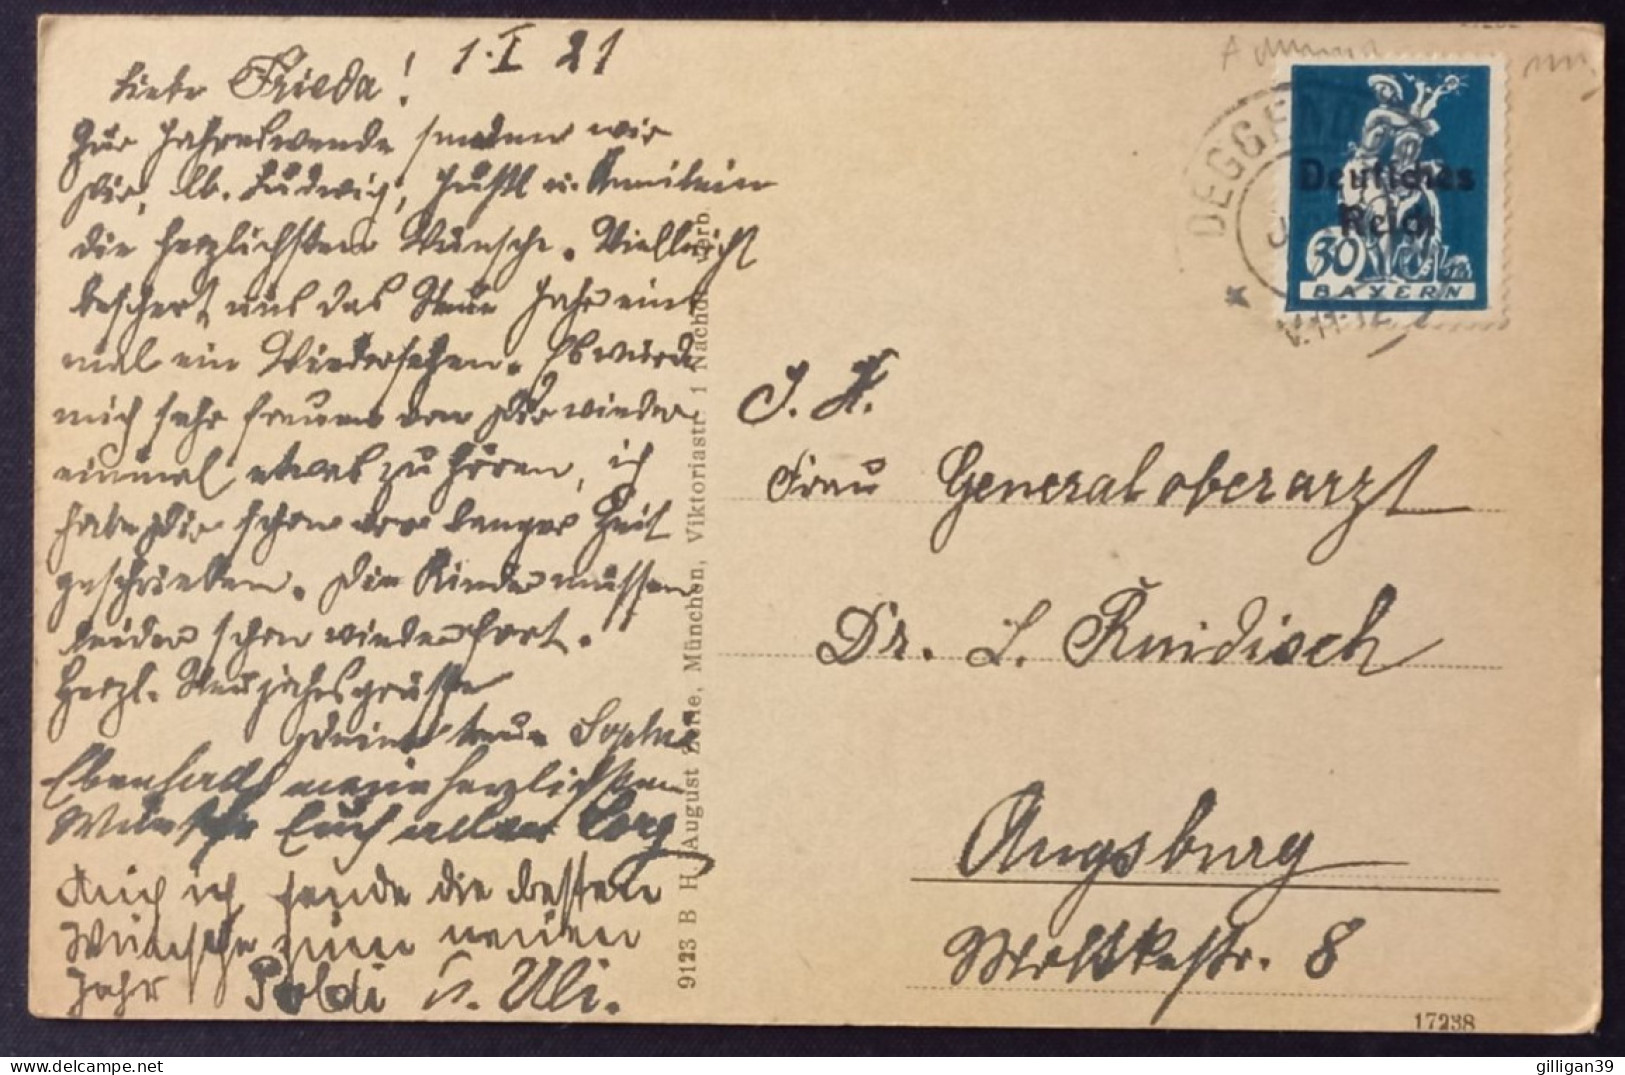 1. I 21
Liebe Frieda!
Zur Jahreswende senden wir
Dir, lb. Ludwig, Gustl u. Annelein
die herzlichsten Wünsche. Vielleicht
beschert uns das Neue Jahr ein
mal ein Wiedersehen. Es würde
mich sehr freuen von Dir wieder
einmal etwas zu hören, ich
habe Dir schon vor langer Zeit
geschrieben. Die Kinder müssen
leider schon wieder fort.
Herzl. Neujahrsgrüsse
Deine treue Sophie
Ebenfalls meine herzlichsten
Wünsche Euch allen
Auch ich sende die besten
Wünsche zum neuen
Jahr Poldi u. Uli.
9123 B H. August Zerle, München, Viktoriastr. 1 Nachdr. verb.
DEGGEND
V.11-12
Deutsches
Reich
30
BAYERN
I. H.
Frau Generaloberarzt
Dr. L. Ruidisch
Augsburg
Moltkestr. 8
17238
gilligan39